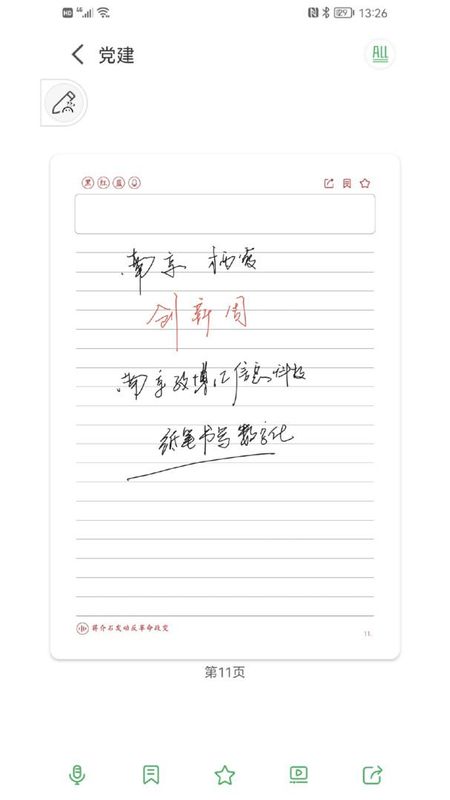 HD 4G 29 13:26
党建 ALL
黑 红 蓝
南京 栖霞
创新周
南京孜博汇信息科技
纸笔书写数字化
蒋介石发动反革命政变
11
第11页